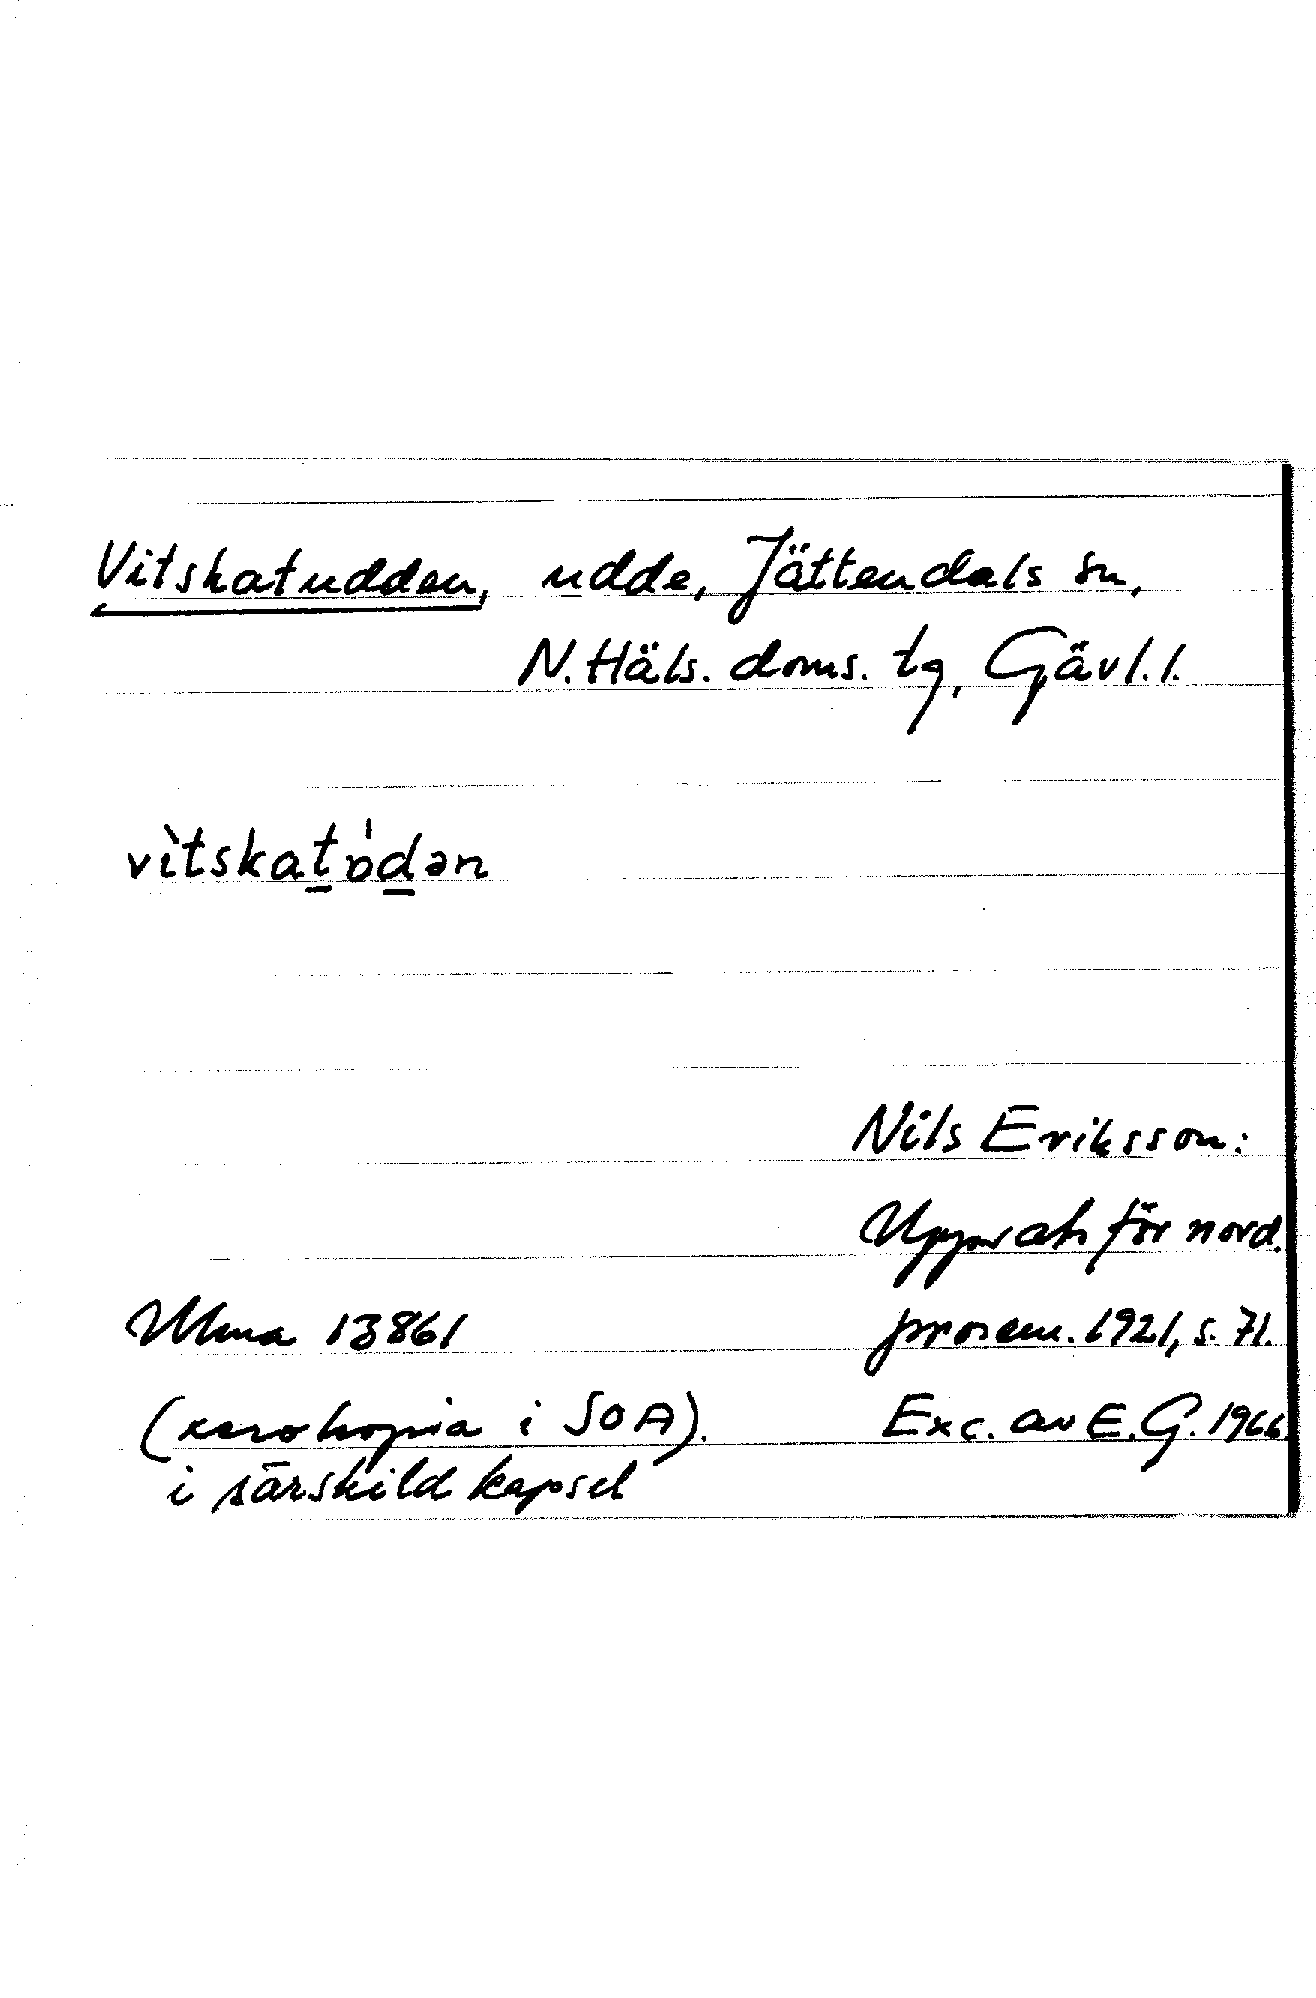 Vitskatudden, udde, Jättendals sn,
N. Häls. doms. tg, Gävl. l.
vìtskatödən
Nils Eriksson:
Uppsats för nord.
Ulma 13861 prosem. 1921, s. 71.
(xerokopia i SOA). Exc. av E. G. 1966.
i särskild kapsel